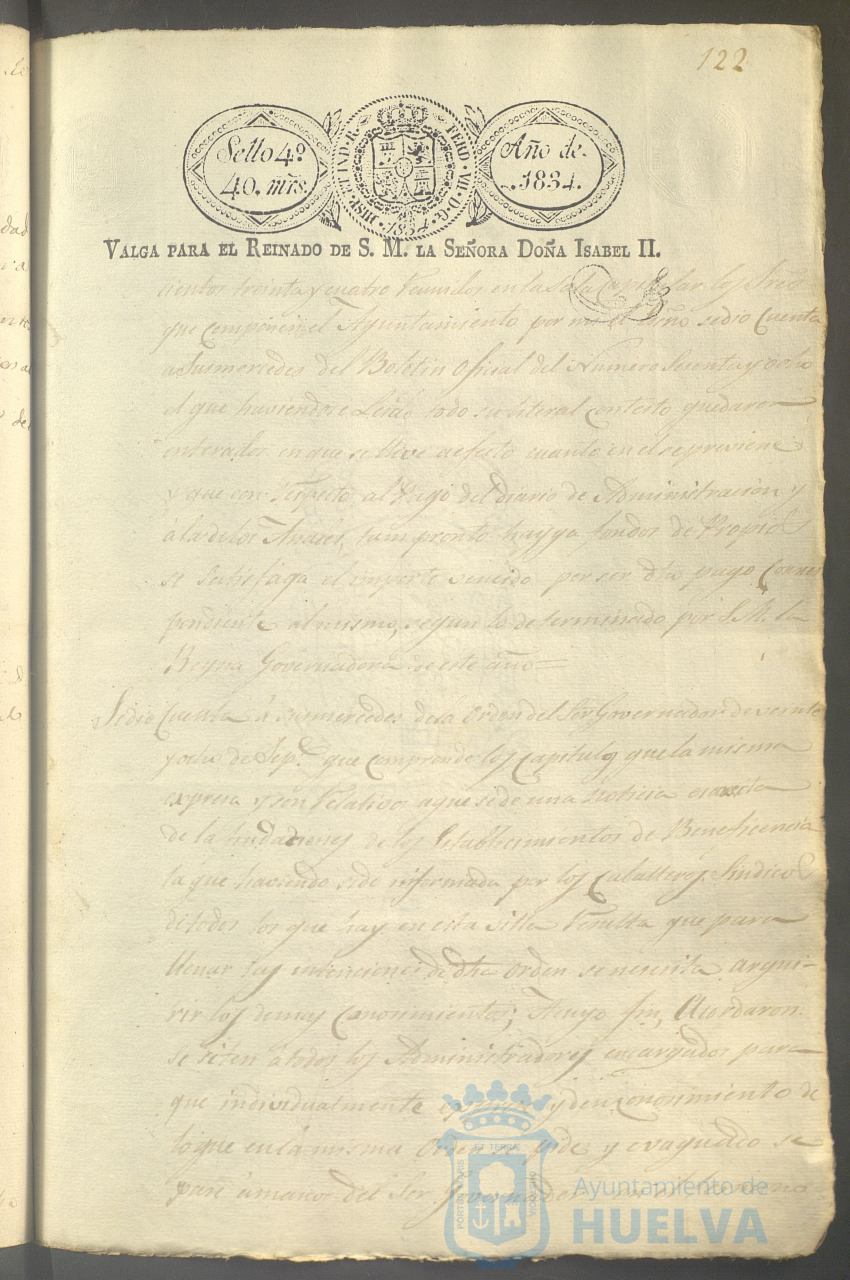 122
Sello 4º
40. mrs.
HISP. ET IND. R.
FERD. VII. D. G.
1834
Año de
1834.
VALGA PARA EL REINADO DE S. M. LA SEÑORA DOÑA ISABEL II.
cientos treinta y cuatro reunidos en la Sala Capitular los Sres
que componen el Ayuntamiento por mi el Esño se dio Cuenta
a Susmercedes del Boletin Oficial del Numero Sesenta y ocho
el que haviendose Leido todo su literal contesto quedaron
enterados en que se lleve aefecto cuanto en el se previene
y que con respecto al Pago del diario de Administracion y
á la de los Anales, tam pronto hayga fondos de Propios
se satisfaga el importe vencido por ser dho pago Corres
pondiente al mismo, segun lo determinado por S.M. la
Reyna Governadora de este año =
Se dio Cuenta á susmercedes de la Orden del Sor Governador de veinte
y ocho de Sepe que comprende los Capitulos que la misma
expresa y son relativos a que se de una noticia esacta
de la fundaciones de los Establecimientos de Beneficencia
la que haciendo sido informada por los Caballeros Sindicos
de todos los que hay en esta Villa resulta que para
llenar las intenciones de dha Orden se necesita arqui-
rir los demas Conosimientos; A cuyo fin, Acordaron
se siten á todos los Administradores encargados para
que individualmente y den conosimiento de
lo que en la misma Orden se pide y evaquado se
pase á manos del Sor Governador
PORTUS MARIS
ET TERRAE
CUSTODIA
Ayuntamiento de
HUELVA